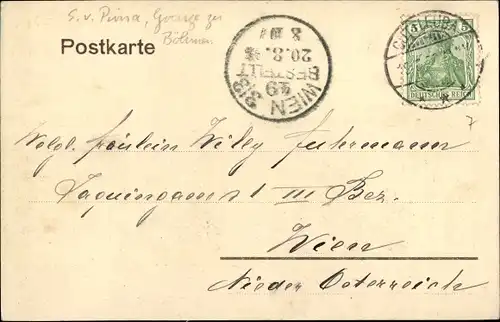 S. v. Pirna, Grenze zu
Böhmen
Postkarte
WIEN
3/3
49
BESTELLT
20.8.
5
5
DEUTSCHES REICH
7
Wolgl. Fräulein Willy Fuhrmann
1 III Bez.
Wien
Nieder Österreich